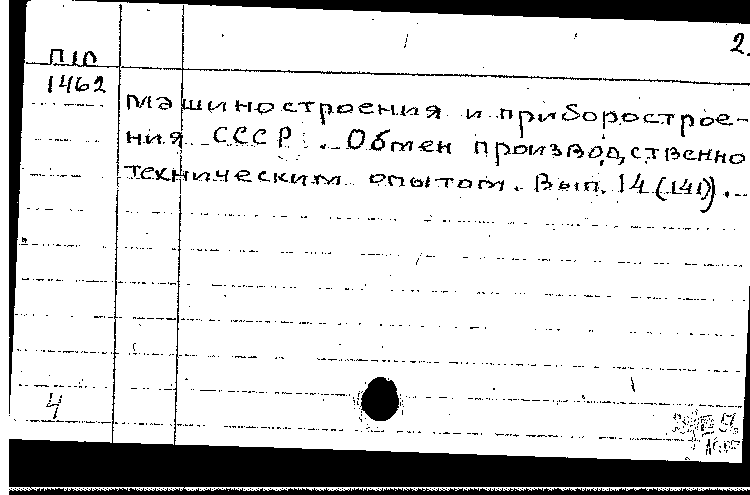 2.
П10
1462
машиностроения и приборострое-
ния СССР. Обмен производственно
техническим опытом. Вып. 14(141). -
4